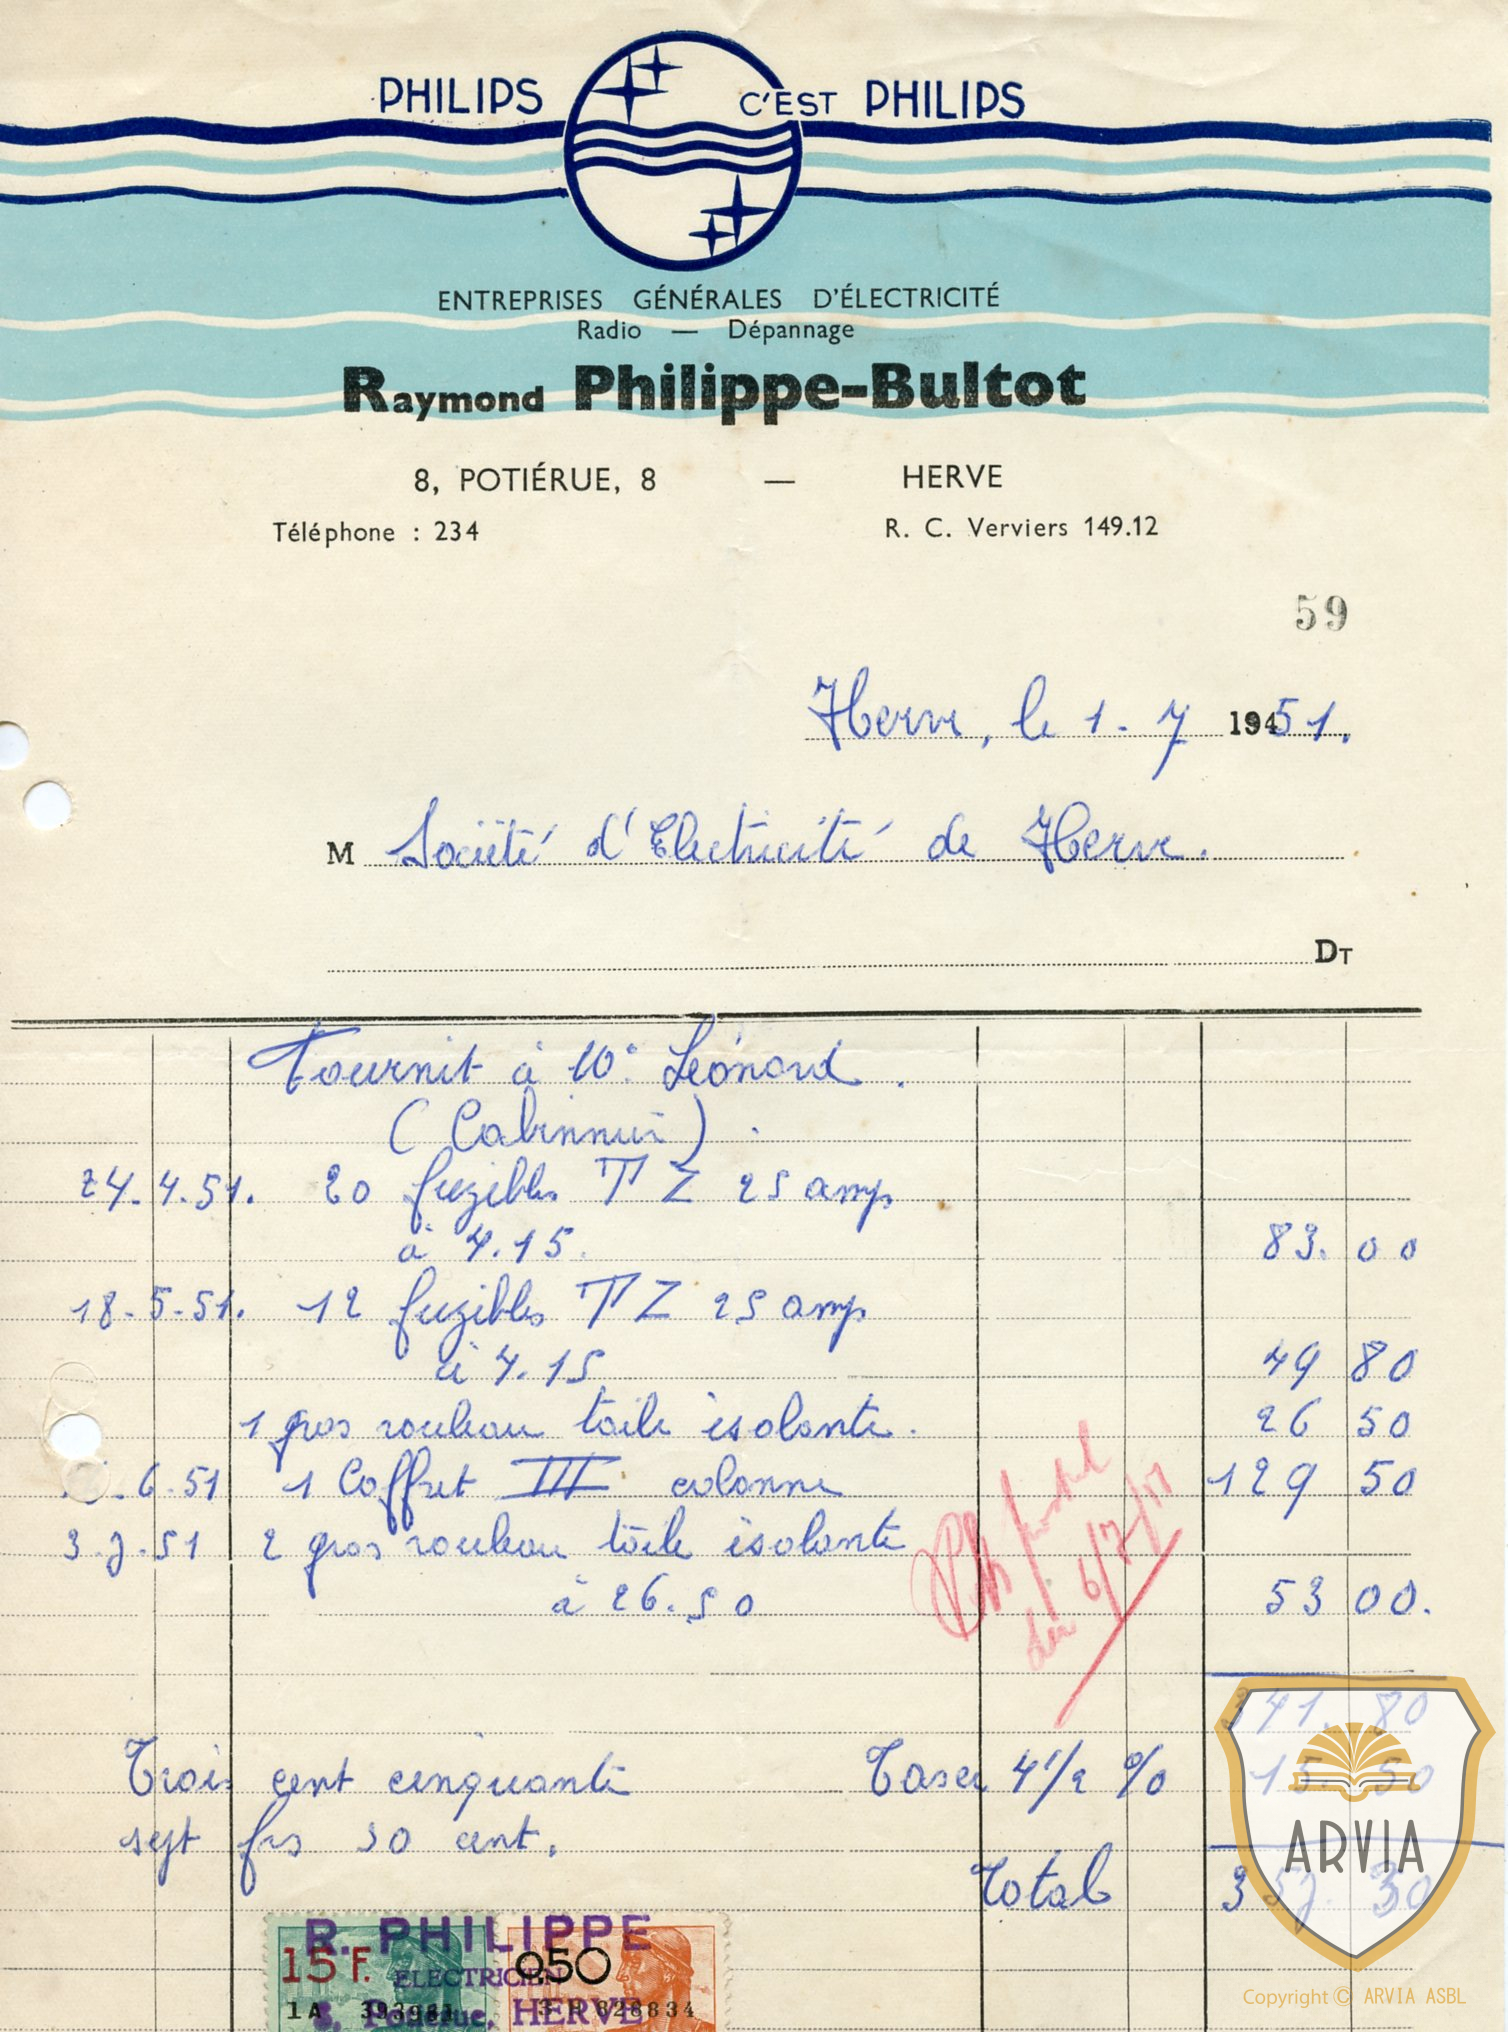 PHILIPS C'EST PHILIPS
ENTREPRISES GÉNÉRALES D'ÉLECTRICITÉ
Radio — Dépannage
Raymond Philippe-Bultot
8, POTIÉRUE, 8 — HERVE
Téléphone : 234 R. C. Verviers 149.12
59
Herve, le 1. 7 194 51.
M Société d'Electricité de Herve.
DT
Fournit à Léonard.
24.4.51. 20 fuzibles TZ 25 amp
à 4.15. 83.00
18-5-51. 12 fuzibles TZ 25 amp
à 4.15 49 80
1 gros rouleau toile isolante. 26 50
.6.51 1 Coffret III colonne 129 50
3.7.51 2 gros rouleau toile isolante
à 26.50 53 00.
du 6/7/51
341.80
Trois cent cinquante Taxe 4 1/2 % 15.50
sept frs 30 cent.
Total 357.30
R. PHILIPPE
15 F. 0,50
ELECTRICIEN
1A
8, Potiérue, HERVE
ARVIA
Copyright © ARVIA ASBL